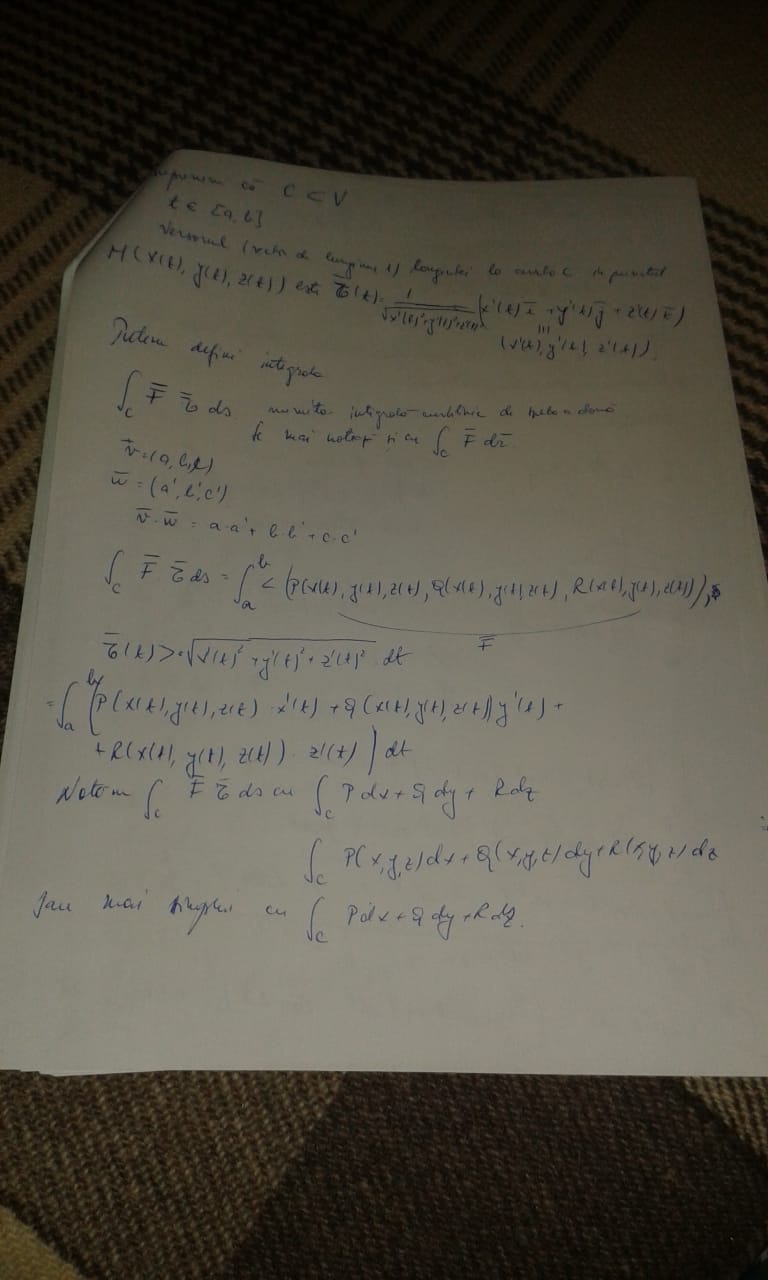 că C ⊂ V
t ∈ [a, b]
Versorul (vector de lungime 1) tangentei la curba C în punctul
M(x(t), y(t), z(t)) este τ̄(t) = 1/√(x'(t)²+y'(t)²+z'(t)²) (x'(t) ī + y'(t) j̄ + z'(t) k̄)
(x'(t), y'(t), z'(t)).
Putem defini integrala
∫_C F̄ τ̄ ds numită integrală curbilinie de speța a doua
Se mai notează și cu ∫_C F̄ dr̄
v̄ = (a, b, c)
w̄ = (a', b', c')
v̄ · w̄ = a·a' + b·b' + c·c'
∫_C F̄ τ̄ ds = ∫_a^b < (P(x(t), y(t), z(t)), Q(x(t), y(t), z(t)), R(x(t), y(t), z(t))),
F̄
τ̄(t) > · √(x'(t)² + y'(t)² + z'(t)²) dt
= ∫_a^b (P(x(t), y(t), z(t)) · x'(t) + Q(x(t), y(t), z(t)) y'(t) +
+ R(x(t), y(t), z(t)) · z'(t)) dt
Notăm ∫_C F̄ τ̄ ds cu ∫_C P dx + Q dy + R dz
∫_C P(x, y, z) dx + Q(x, y, z) dy + R(x, y, z) dz
Sau mai simplu cu ∫_C P dx + Q dy + R dz.